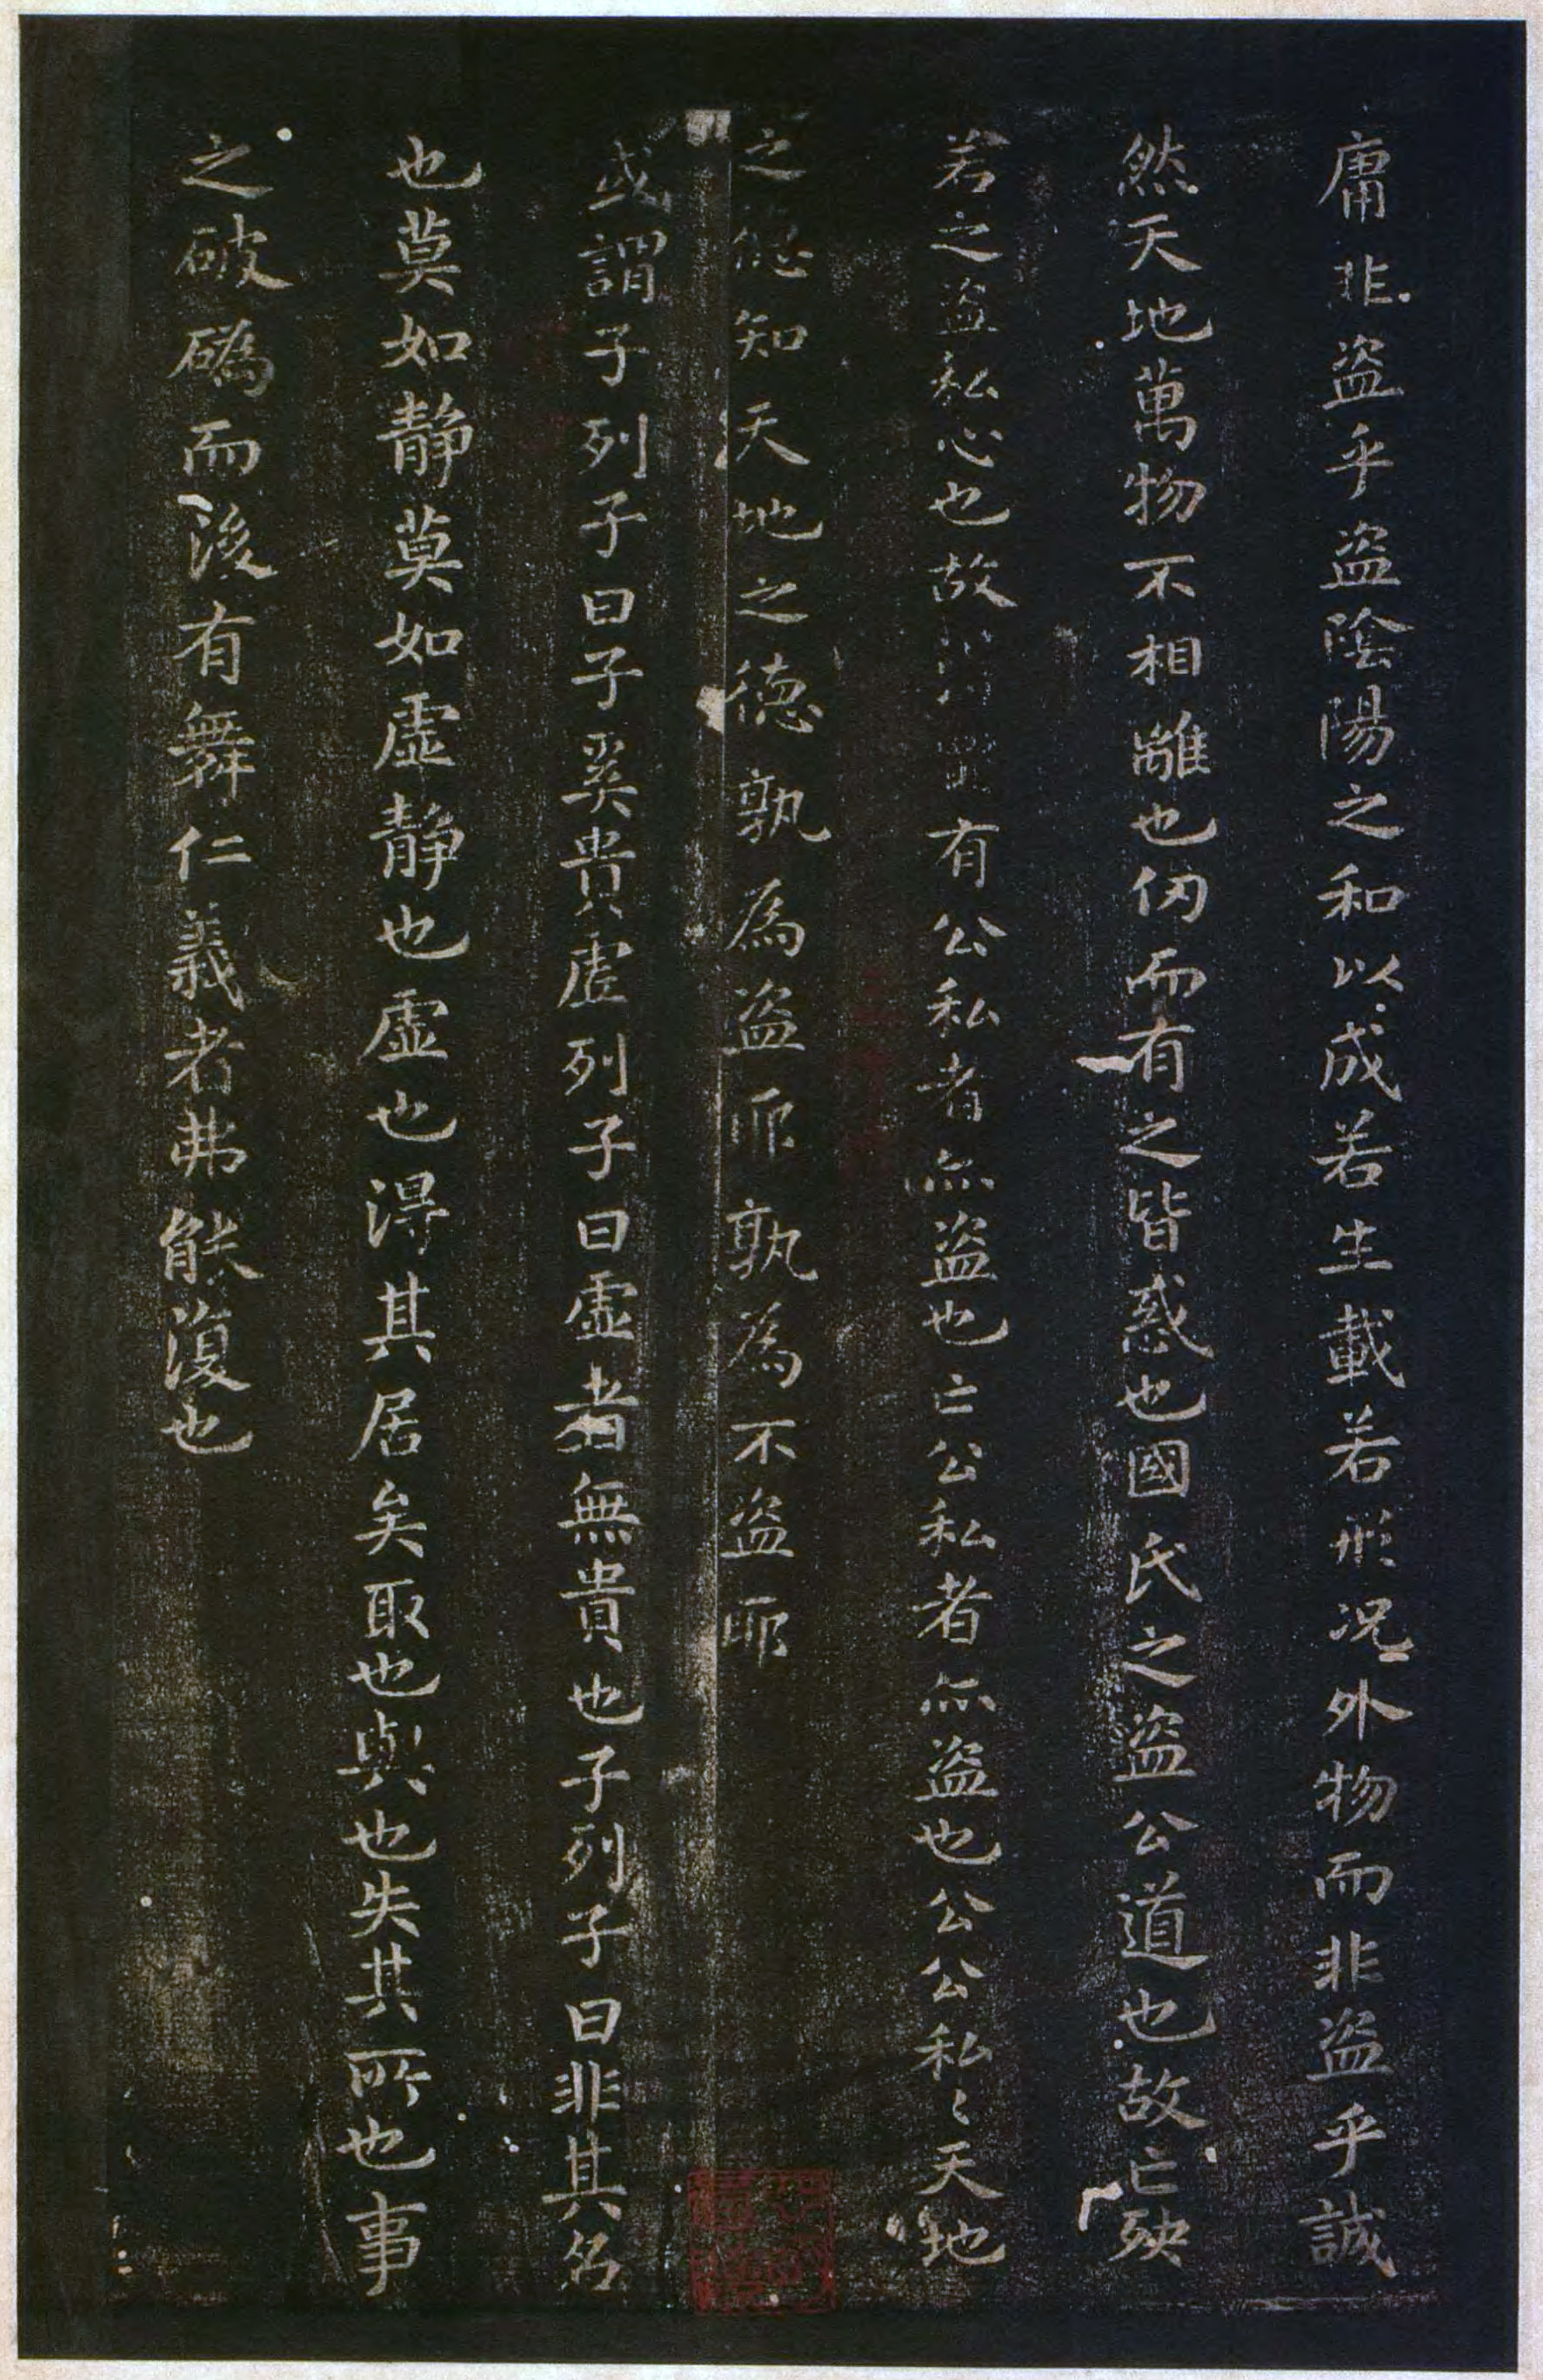 庸非盗乎盗陰陽之和以成若生載若形况外物而非盗乎誠
然天地萬物不相離也仞而有之皆惑也國氏之盗公道也故亡殃
若之盗私心也故有公私者亦盗也亡公私者亦盗也公公私〻天地
之德知天地之德孰為盗耶孰為不盗耶
或謂子列子曰子奚貴虛列子曰虛者無貴也子列子曰非其名
也莫如静莫如虛静也虛也淂其居矣取也與也失其所也事
之破䃣而後有舞仁義者弗能復也